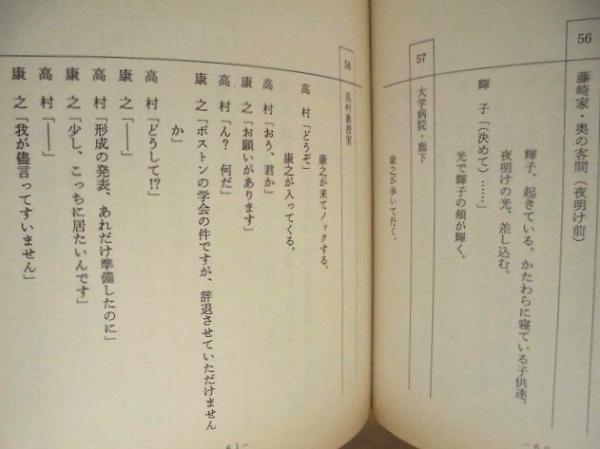 56
藤崎家・奥の客間(夜明け前)
輝子、起きている。かたわらに寝ている子供達。
夜明けの光、差し込む。
輝 子「(決めて)……」
光で輝子の頬が輝く。
57
大学病院・廊下
康之が歩いて行く。
58
高村教授室
康之が来てノックする。
高 村「どうぞ」
康之が入ってくる。
高 村「おう、君か」
康 之「お願いがあります」
高 村「ん? 何だ」
康 之「ボストンの学会の件ですが、辞退させていただけません
か」
高 村「どうして!?」
康 之「――」
高 村「形成の発表、あれだけ準備したのに」
康 之「少し、こっちに居たいんです」
高 村「――」
康 之「我が儘言ってすいません」